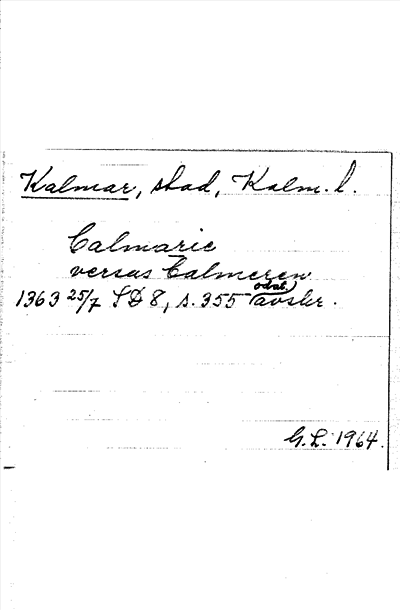 Kalmar, stad, Kalm. l.
Calmarie
versus Calmeren
odat.
1363 25/7 SD 8, s. 355 avskr.
G. L. 1964.